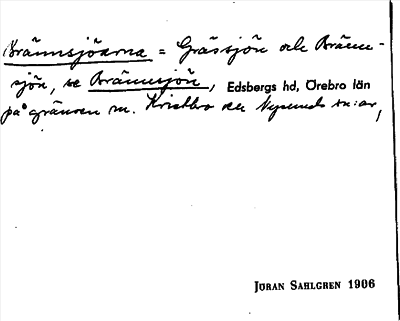 Brännsjöarna = Grässjön och Bränn-
sjön, se Brännsjön, Edsbergs hd, Örebro län
på gränsen m. Knistbro och Nysunds sn:ar,
JÖRAN SAHLGREN 1906